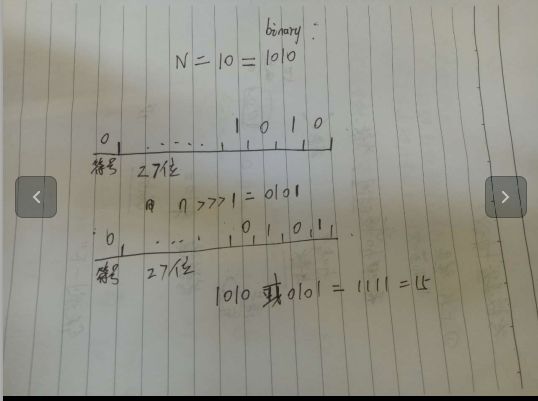 binary:
N = 10 = 1010
0 ..... 1 0 1 0
符号 27位
n >>> 1 = 0101
0 .... 0 1 0 1
符号 27位
1010 或 0101 = 1111 = 15